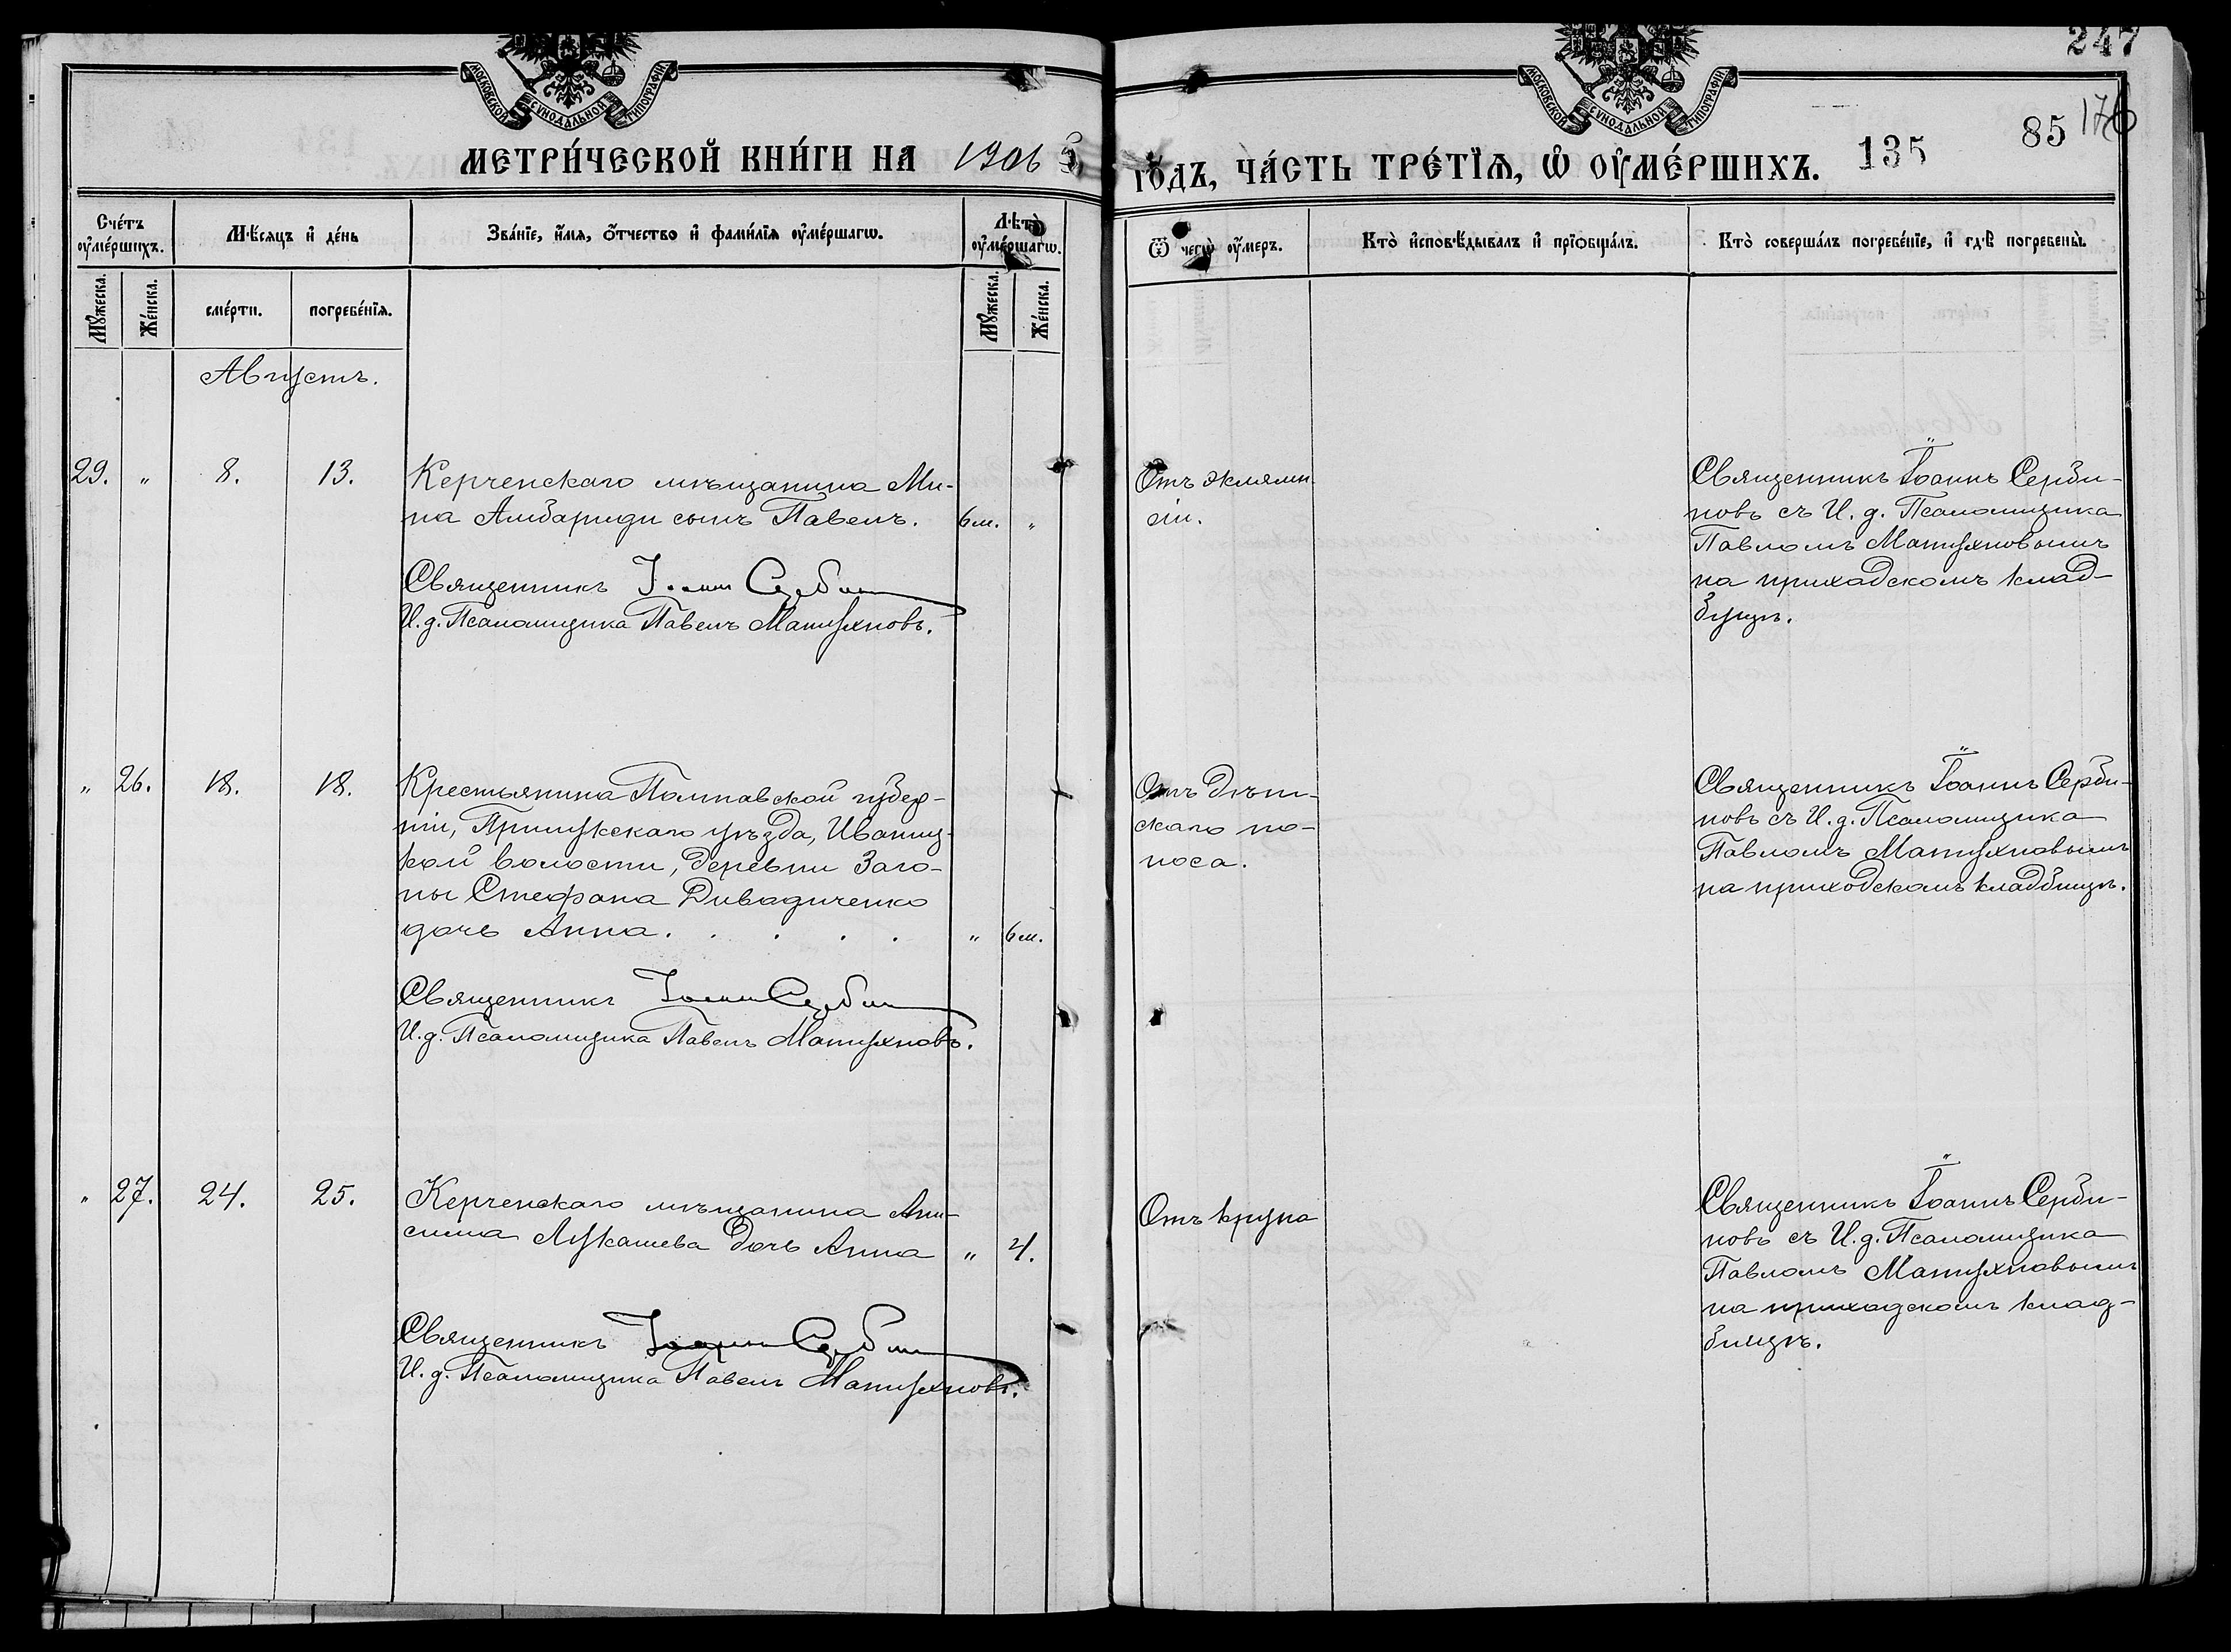 247
МОСКОВСКОЙ СѴНОДАЛЬНОЙ ТИПОГРАФІИ
МОСКОВСКОЙ СѴНОДАЛЬНОЙ ТИПОГРАФІИ
МЕТРИ́ЧЕСКОЙ КНИ́ГИ НА 1906
ГО́ДЪ, ЧА́СТЬ ТРЕ́ТІѦ, Ѡ҆ ОУ҆МЕ́РШИХЪ. 135 85 176
Сче́тъ оу҆ме́ршихъ.
Мѣ́сяцъ и҆ де́нь
Зва́ніе, и҆́мя, ѻ҆́тчество и҆ фами́лія оу҆ме́ршагѡ.
Лѣ́тъ оу҆ме́ршагѡ.
Ѿ чегѡ̀ оу҆́меръ.
Кто̀ и҆сповѣ́дывалъ и҆ пріѡбща́лъ.
Кто̀ соверша́лъ погребе́ніе, и҆ гдѣ̀ погребены̀.
Мꙋ́жеска. Же́нска. сме́рти. погребе́нія. Мꙋ́жеска. Же́нска.
Августъ.
29. „ 8. 13. Керченскаго мѣщанина Ми-
на Амбариди сынъ Павелъ. 6 м. „
Священникъ Іоаннъ Сербиновъ
И. д. Псаломщика Павелъ Матухновъ.
Отъ эклямп
сіи.
Священникъ Іоаннъ Серби-
новъ съ И. д. Псаломщика
Павломъ Матухновымъ
на приходскомъ клад-
бищѣ.
„ 26. 18. 18. Крестьянина Полтавской губер-
ніи, Прилукскаго уѣзда, Иваниц-
кой волости, деревни Заго-
ны Стефана Дивадиченко
дочь Анна. . . . . „ 6 м.
Священникъ Іоаннъ Сербиновъ
И. д. Псаломщика Павелъ Матухновъ.
Отъ дѣт-
скаго по-
носа.
Священникъ Іоаннъ Серби-
новъ съ И. д. Псаломщика
Павломъ Матухновымъ
на приходскомъ кладбищѣ.
„ 27. 24. 25. Керченскаго мѣщанина Ани-
сима Лукашева дочь Анна „ 4.
Священникъ Іоаннъ Сербиновъ
И. д. Псаломщика Павелъ Матухновъ.
Отъ крупа
Священникъ Іоаннъ Серби-
новъ съ И. д. Псаломщика
Павломъ Матухновымъ
на приходскомъ клад-
бищѣ.